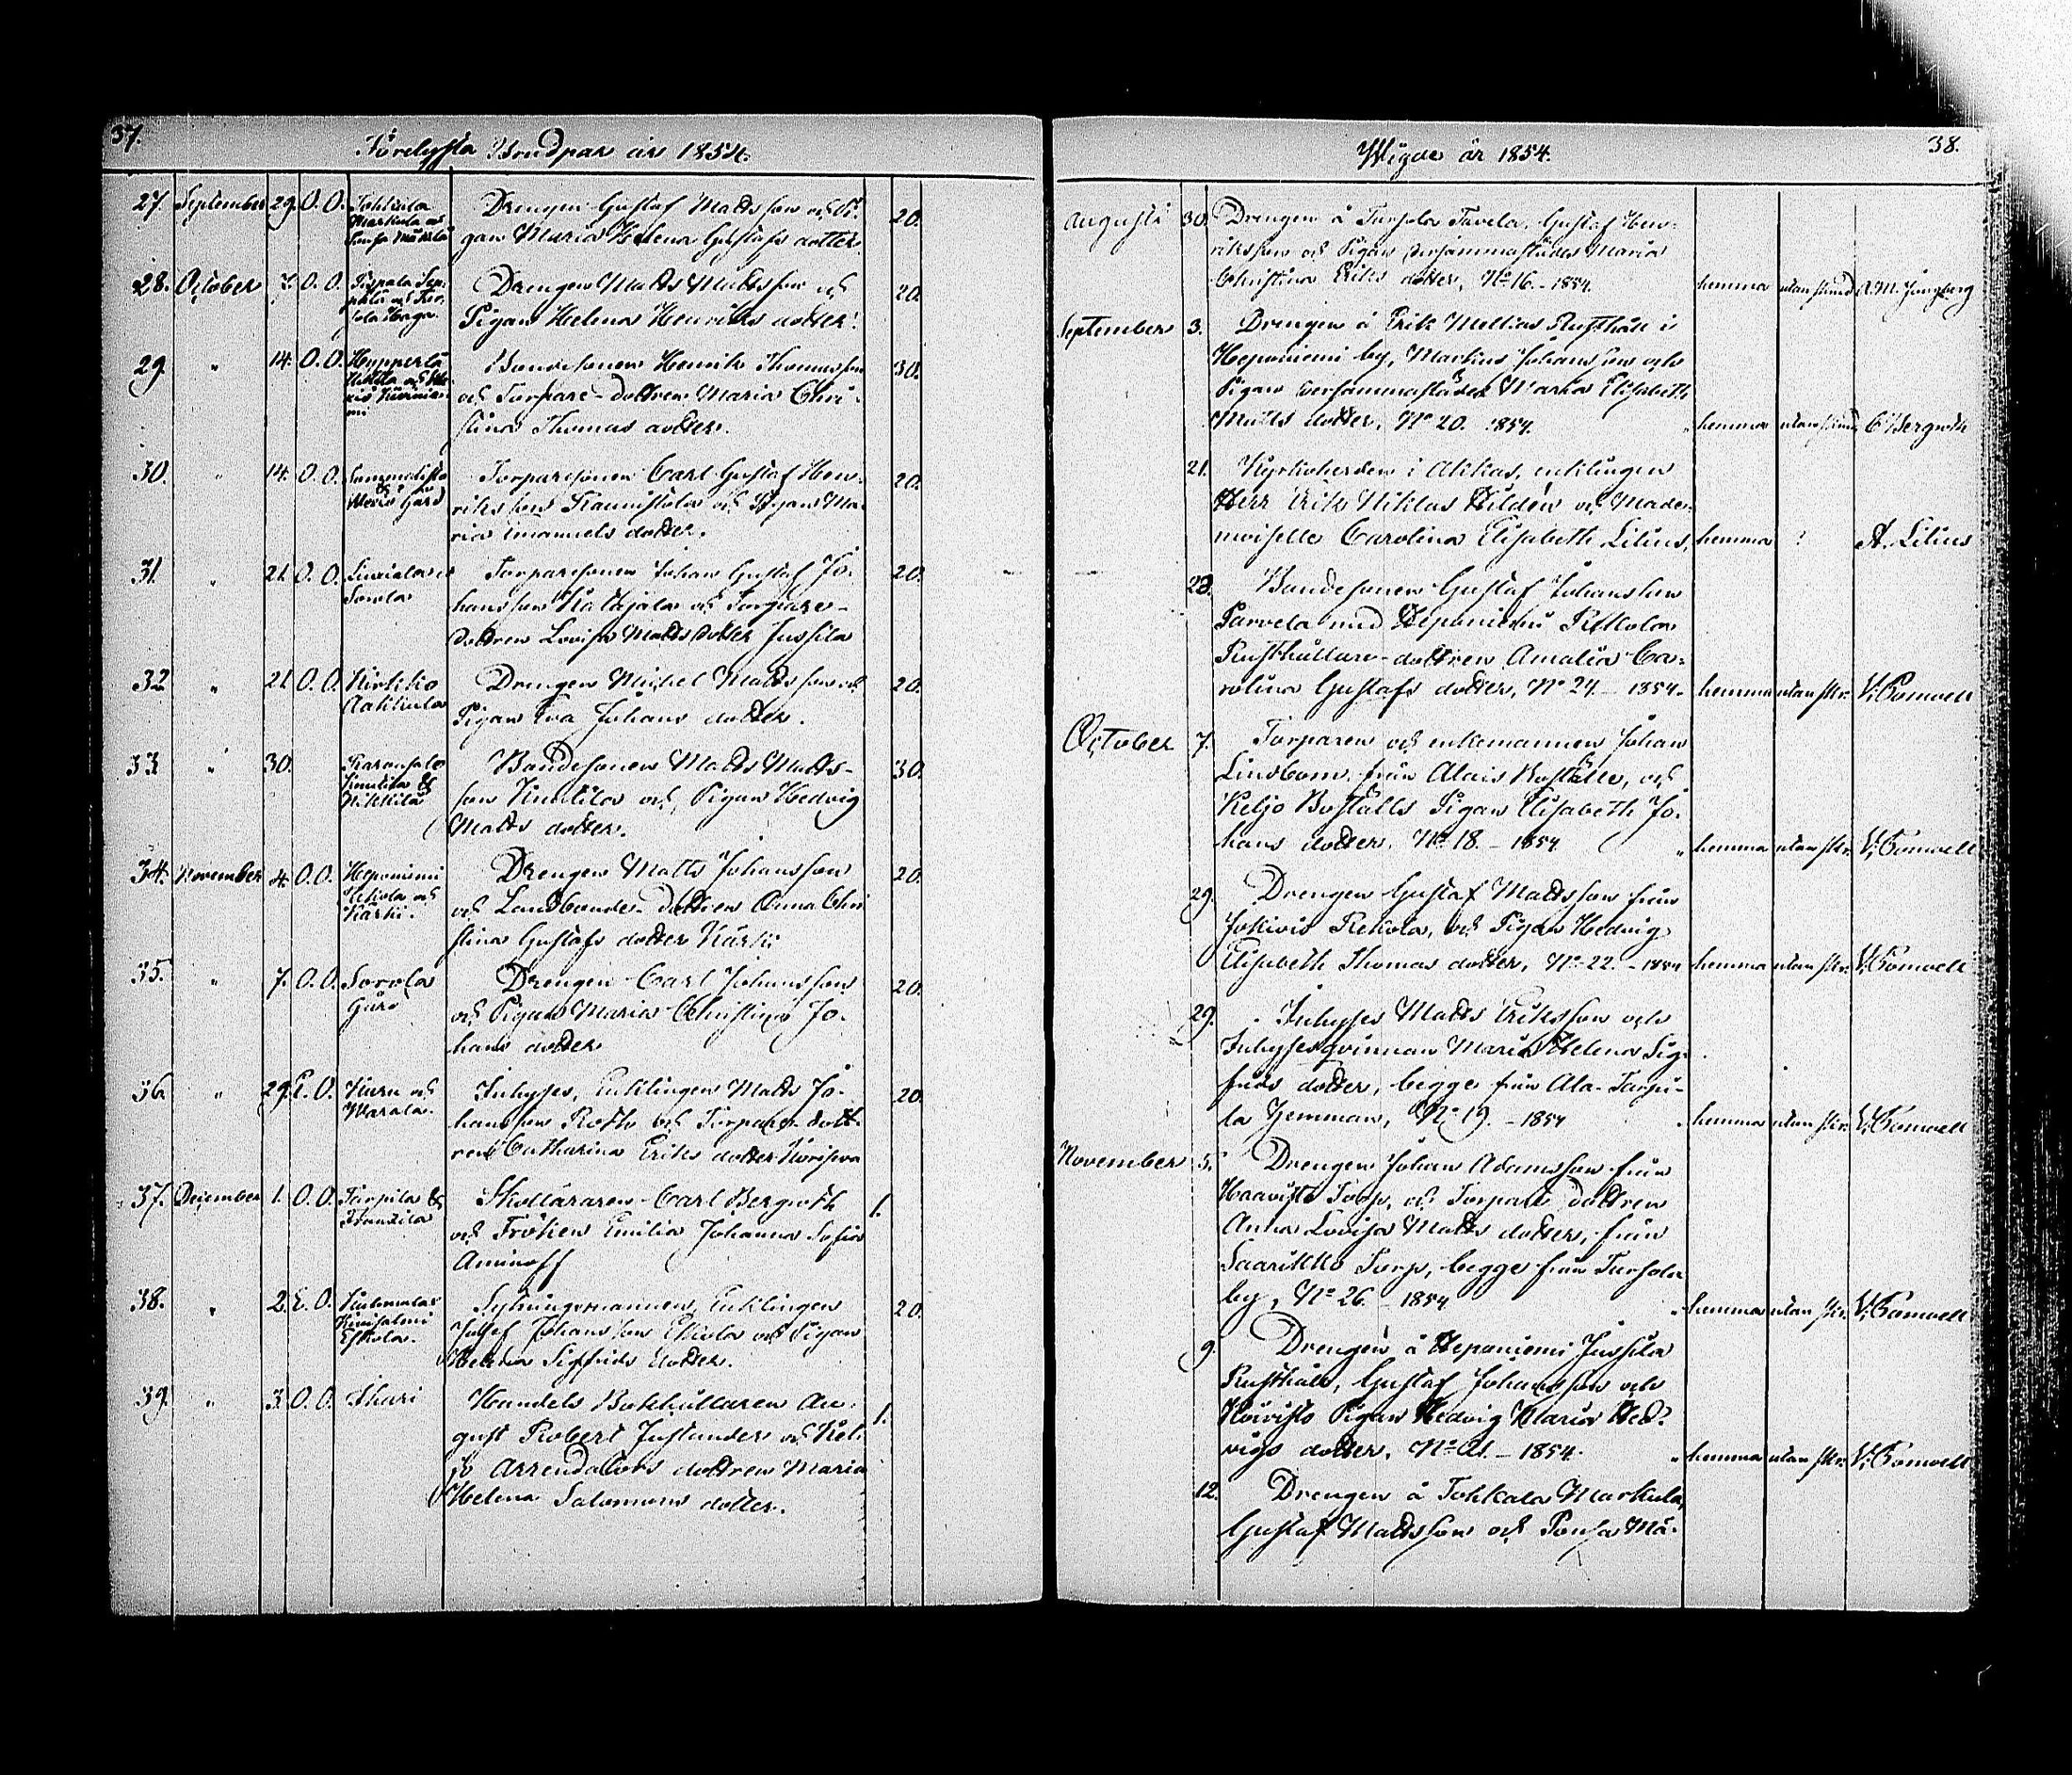 37.
Förelysta Brudpar år 1854.
27. September 29. O. O. Tokkala Markula och Ponsa Mäkelä Drengen Gustaf Matts son och Pi- 20.
gan Maria Helena Gustafs dotter
28. October 7. O. O. Drengen Matts Matts son och 20.
Pigan Helena Henriks dotter.
29. " 14. O. O. Hypperlä Bondesonen Henrik Thomas son 30.
och Torpare-dottren Maria Chri-
stina Thomas dotter.
30. " 14. O. O. Torparesonen Carl Gustaf Hen- 20.
riks son Kaunistola och Pigan Ma-
ria Emanuels dotter.
31. " 21. O. O. Sorola Torparesonen Johan Gustaf Jo- 20.
hans son och Torpare-
dottren Lovisa Matts dotter Jussila
32. " 21. O. O. Kirkko Aakkula Drengen Michel Matts son och 20.
Pigan Eva Johans dotter.
33. " 30. Knutila & Nikkilä Bondesonen Matts Matts- 30.
son Knutila och Pigan Hedvig
Matts dotter.
34. November 4. O. O. Heponiemi och Kärki. Drengen Matts Johans son 20.
och Landbonde-dottren Anna Chri
stina Gustafs dotter Kärki
35. " 7. O. O. Sorola Gård Drengen Carl Johans son 20.
och Pigan Maria Christina Jo-
hans dotter
36. " 29. E. O. och Marala. Inhyses, Enklingen Matts Jo- 20.
hans son Roth och Torpare dott-
ren Catharina Eriks dotter
37. December 1. O. O. Tarpila & Frantsila Skolläraren Carl Bergroth 1.
och Fröken Emilia Johanna Sofia
Aminoff
38. " 2. E. O. Eskola. Enklingen 20.
Josef Johans son Eskola och Pigan
Helena Sigfrids dotter.
39. " 3. O. O. Ahari Handels Bokhållaren Au- 1.
gust Robert Juslander och Kel-
jo Arrendators dottren Maria
Helena Salomons dotter.
Wigde år 1854.
38.
Augusti 30. Drengen å Turpola Tavela, Gustaf Hen-
riks son och Pigan dersammastädes Maria
Christina Eriks dotter, No 16. - 1854. hemma utan skrud
September 3. Drengen å Erik Mellias Rusthåll i
Heponiemi by, Markus Johans son och
Pigan dersammastädes Maria Elisabeth
Matts dotter, No 20. 1854. hemma utan skrud C Bergroth
21. Kyrkoherden i Akkas, enklingen
Herr Erik Niklas Hildén och Made-
moiselle Carolina Elisabeth Lilius, hemma ? A. Lilius
28. Bondesonen Gustaf Johans son
Parvela med Heponiemi Pitkola
Rusthållare-dottren Amalia Ca-
rolina Gustafs dotter, No 24 - 1854. hemma utan skr.
October 7. Torparen och enkemannen Johan
Lindbom från Alais Boställe, och
Keljo Boställs Pigan Elisabeth Jo-
hans dotter. No 18. - 1854 " hemma utan skr.
29. Drengen Gustaf Matts son från
Jokivis Rekola, och Pigan Hedvig
Elisabeth Thomas dotter, No 22. - 1854 hemma utan skr.
29. Inhyses Matts Eriks son och
Inhysesqvinnan Maria Helena Sig-
frids dotter, begge från Ala-Tarpi-
la Hemman, No 19. - 1854 " hemma utan skr.
November 5. Drengen Johan Adams son från
Haavisto Torp, och Torpare dottren
Anna Lovisa Matts dotter, från
Saarikko Torp, begge från Turpola
by, No 26. - 1854 " hemma utan skr.
9. Drengen å Heponiemi Jussila
Rusthåll, Gustaf Johans son och
Koivisto Pigan Hedvig Maria Hed-
vigs dotter, No 21. - 1854. " hemma utan skr.
12. Drengen å Tokkala Markula,
Gustaf Matts son och Ponsa Mä-